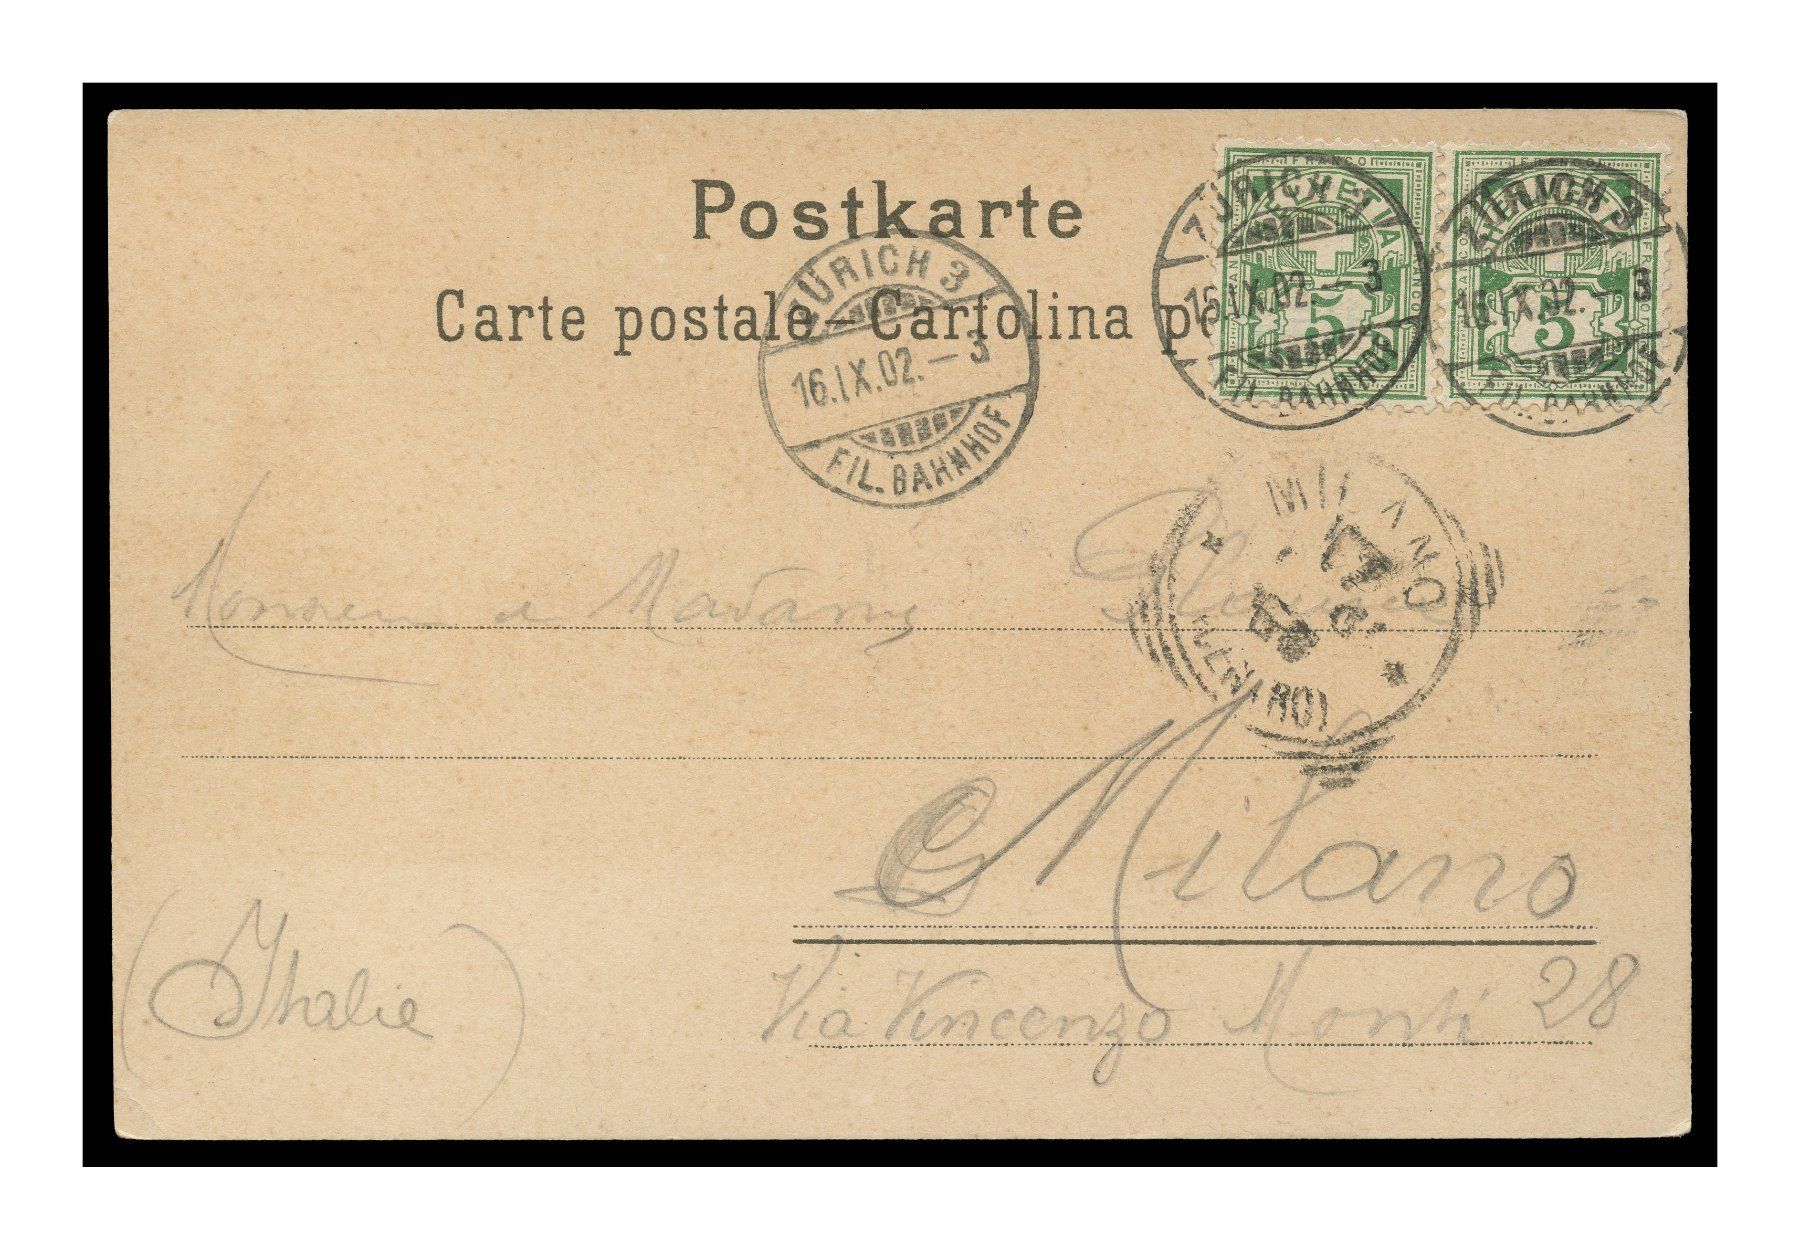 Postkarte
Carte postale – Cartolina p
FRANCO
HELVETIA
5
FRANCO
HELVETIA
5
ZÜRICH 3
16.IX.02.–3
FIL. BAHNHOF
ZÜRICH 3
16.IX.02.–3
FIL. BAHNHOF
ZÜRICH 3
16.IX.02.–3
FIL. BAHNHOF
MILANO
17
(CENTRO)
Monsieur et Madame
Milano
(Italie)
Via Vincenzo Monti 28